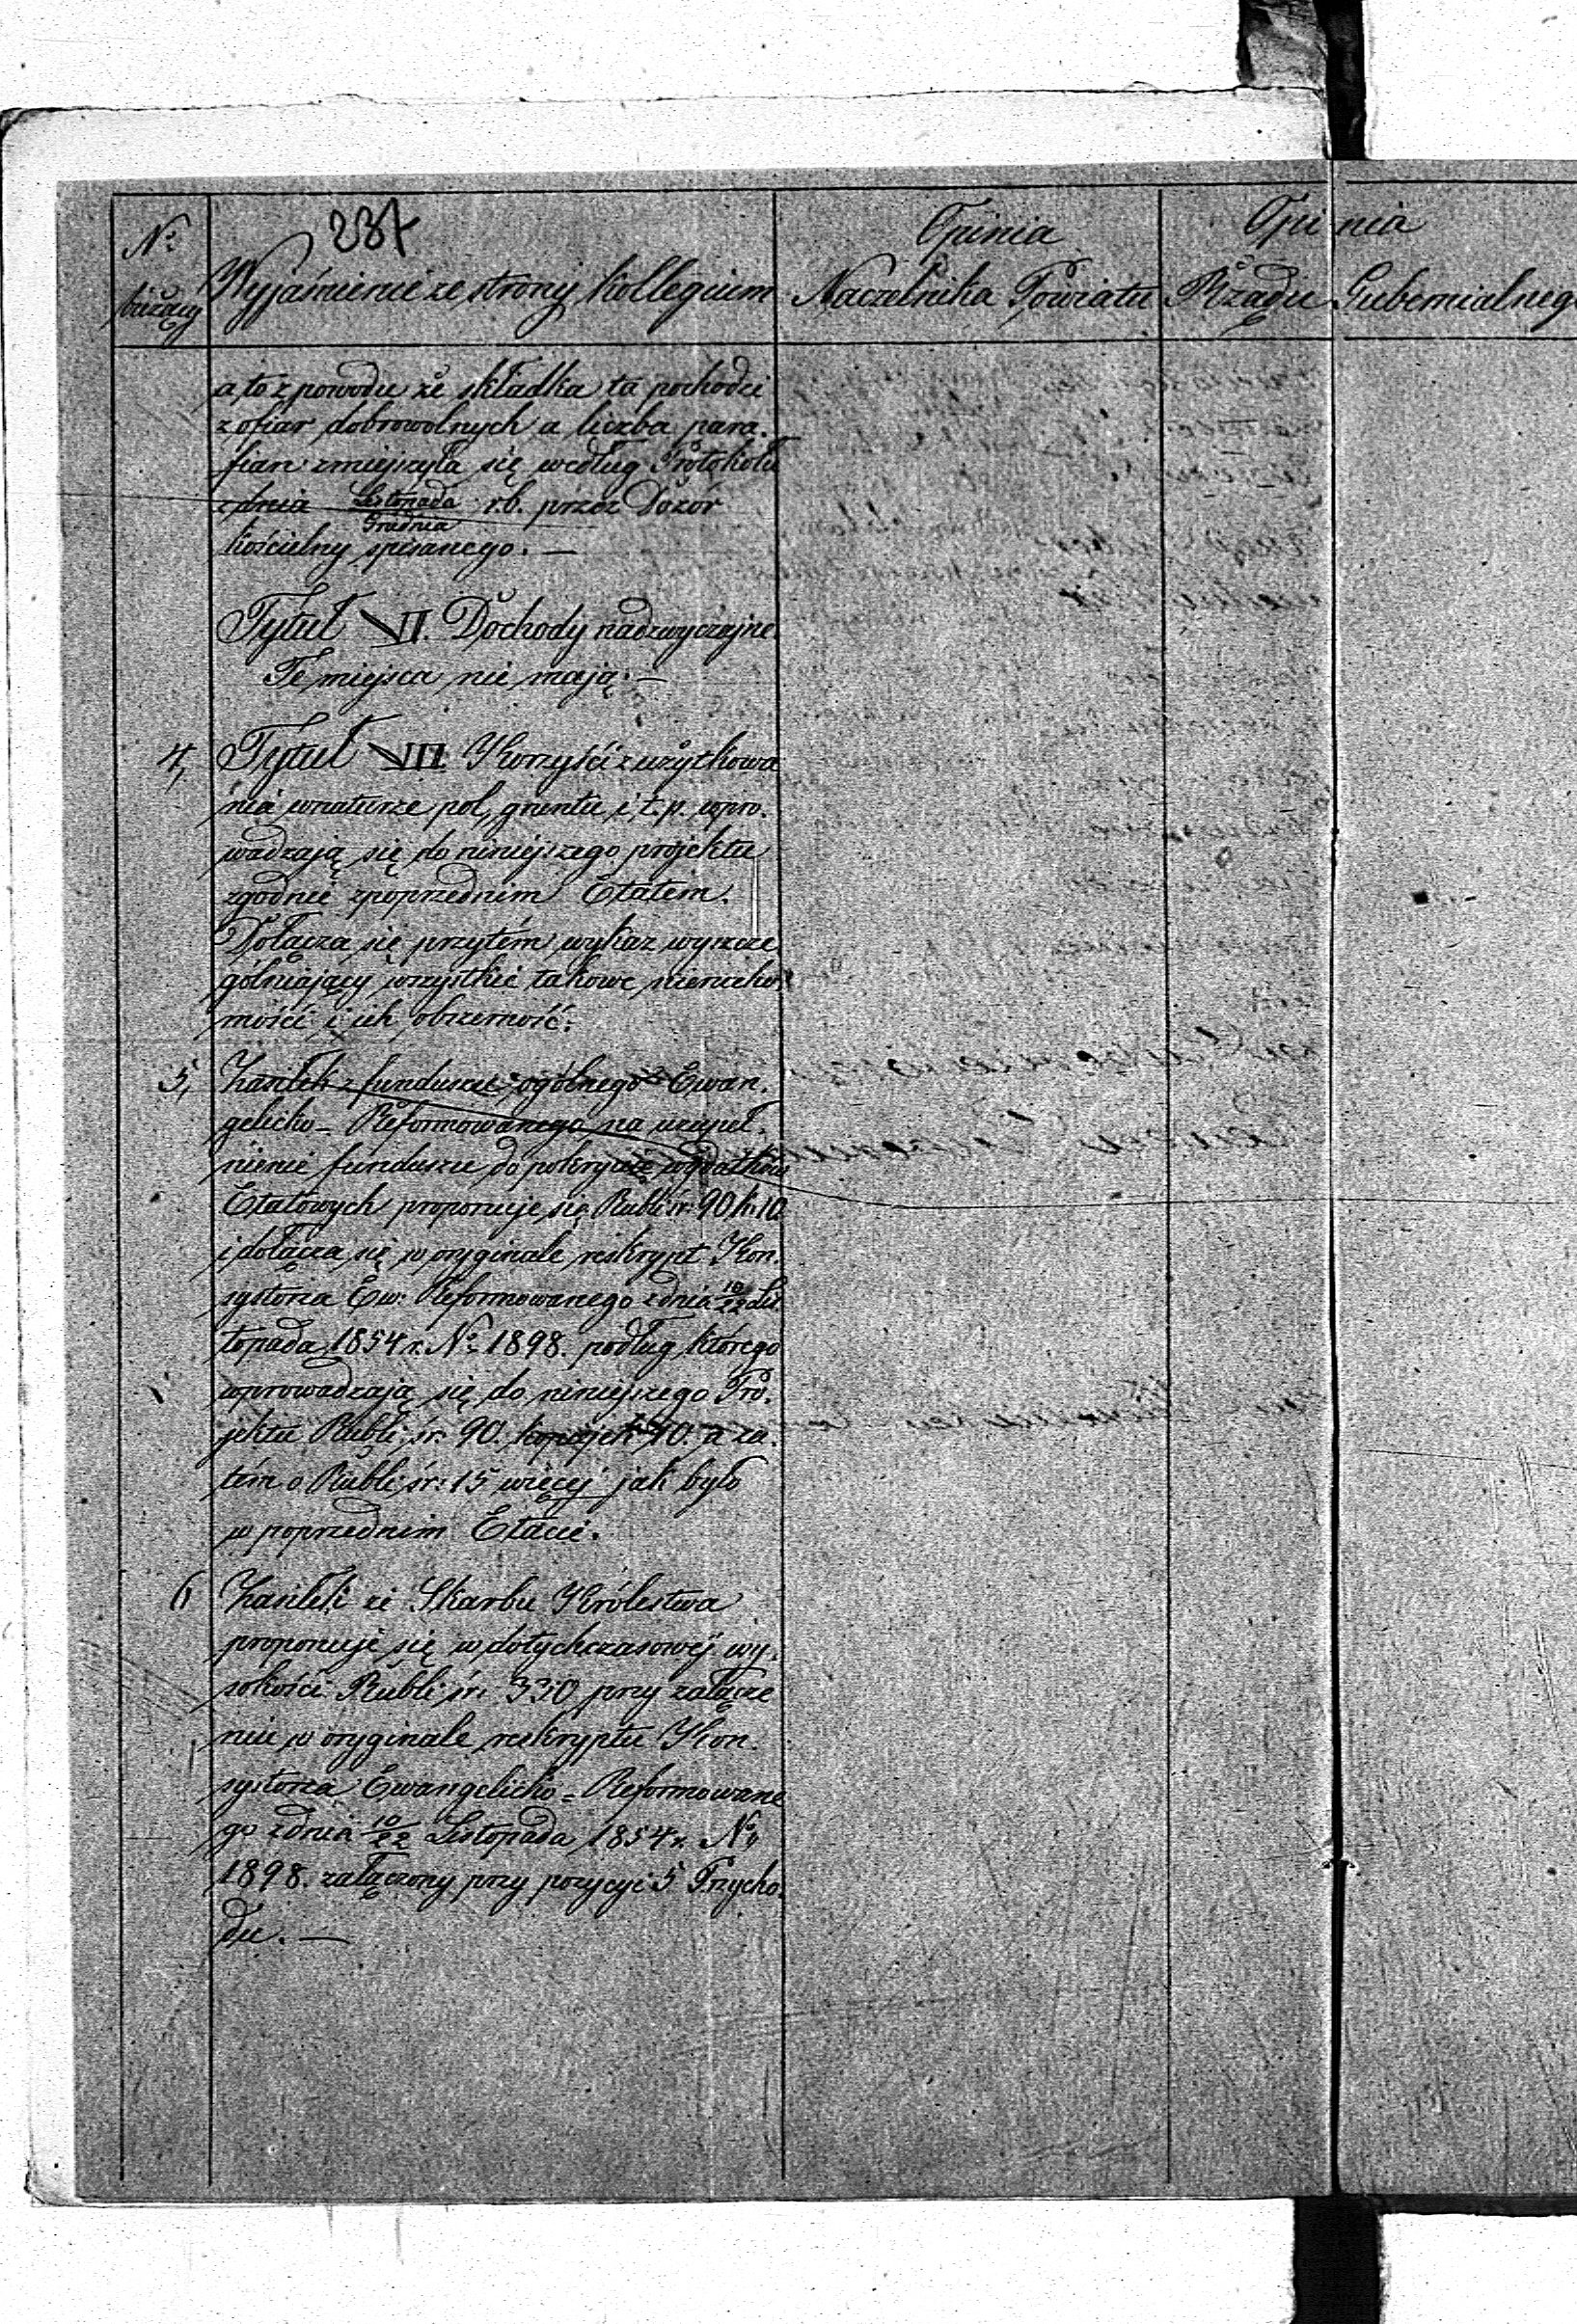 237
Nº bieżący
Wyjaśnienie ze strony Kollegium
Opinia Naczelnika Powiatu
Opinia Rządu Gubernialnego
a to z powodu że składka ta pochodzi
z ofiar dobrowolnych a liczba para-
fian zmiejszyła się według Protokołu
z dnia Listopada/Grudnia r.b. przez Dozór
kościelny spisanego.—
Tytuł VII. Dochody nadzwyczajne.
Te miejsca nie mają.—
4, Tytuł VIII Korzyści z użytkowa
nia w naturze pol, gruntu i t. p. wpro-
wadzają się do niniejszego projektu
zgodnie z poprzednim Etatem.
Dołącza się przytém wykaz wyszcze
gólniający wszystkie takowe nierucho
mości i ich obszerność.
5, Zasiłek z funduszu ogólnego Ewan-
gelicko-Reformowanego na uzupeł-
nienie funduszu do pokrycia wydatków
Etatowych proponuje się Rubli sr: 90 k. 10
i dołącza się w oryginale reskrypt Kon-
systorza Ew: Reformowanego z dnia 10/22 Lis
topada 1854 r. Nº 1898. podług którego
wprowadzają się do niniejszego Pro-
jektu Rubli sr: 90. kopiejek 10. a za-
tém o Rubli sr: 15 więcej jak było
w poprzednim Etacie.
6 Zasiłek ze Skarbu Królestwa
proponuje się w dotychczasowéj wy-
sokości Rubli sr: 330 przy załącze
niu w oryginale reskryptu Kon-
systorza Ewangelicko=Reformowane
go z dnia 10/22 Listopada 1854 r. Nº
1898. załączony przy pozycyi 5 Przycho-
du.—